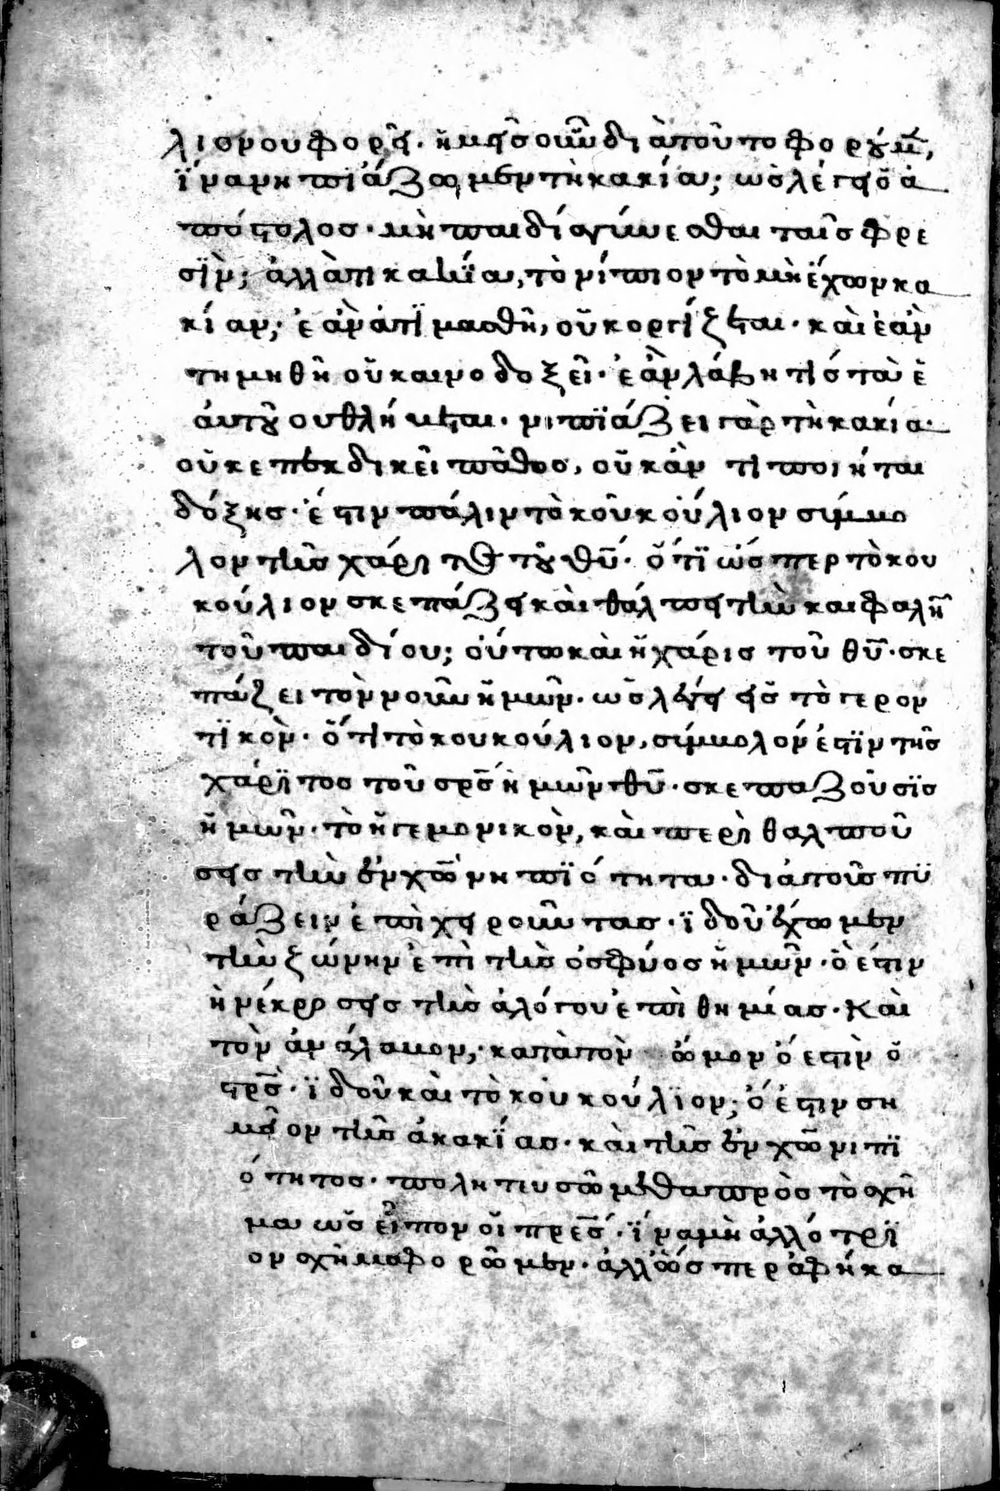 λιονου φορεῖ· ἡμεῖς οὖν διὰ τοῦτο φοροῦμ,
ἵνα νηπιάζωμεν τὴ κακία; ὡς λέγει ὁ ἀ
πόστολος· μὴ παιδία γίνεσθαι ταῖς φρε
σὶν; ἀλλὰ τῆ κακία, τὸ νίπιον τὸ μὴ ἔχων κα
κίαν; ἐὰν ἀτϊμασθῆ, οὐκ οργίζεται· καὶ ἐὰν
τημηθῆ οὐ καινοδοξεῖ· ἐὰν λάβη τίς τὰ ἑ
ἀυτοῦ ου θλήβεται· νιπϊάζει γὰρ τὴ κακία·
οὐκ επεκδικεῖ πάθος, οὐκ ἀντιποιήται
δόξης· ἔστιν πάλιν τὸ κοῦκούλιον σίμβο
λον τῆς χάριτος τοῦ θῦ· ὅτϊ ὥσπερ τὸ κου
κούλιον σκεπάζει καὶ θάλπει τὴν καιφαλὴν
τοῦ παιδίου; οὕτω καὶ ἡ χάρις τοῦ θῦ· σκε
πάζει τὸν νοῦν ἡμῶν· ὡς λέγει εἰς τὸ γερον
τϊκὸν· ὅτι τὸ κουκούλιον, σίμβολόν ἐστϊν τῆς
χάρϊτος τοῦ σρς ἡμῶν θῦ· σκεπαζοῦσϊς
ἡμῶν· τὸ ἡγεμονικὸν, καὶ περὶθαλποῦ
σεις τὴν ἐν χω νηπϊότητα· διὰ τοῦς πϋ
ράζειν ἐπὶχειροῦντας· ϊδοῦ ἔχωμεν
τὴν ζώνην ἐπὶ τῆς ὀσφύος ἡμῶν· ὅ ἐστιν
ἡ νέκρωσεις τῆς ἀλόγου ἐπὶθημίας· Καὶ
τὸν ἀνάλαβον, κατὰ τὸν ὦμον ὅ εστὶν ὁ
στρς· ϊδοῦ καὶ τὸ κουκούλϊον; ὅ ἐστιν ση
μεῖον τῆς ἀκακίας· καὶ τῆς ἐν χω νιπϊ
ότητος· πολητευσώμεθα πρὸς τὸ σχῆ
μα ὡς εἶπον οἱ πρες· ἵνα μὴ ἀλλότρϊ
ον σχῆμα φορῶμεν· ἀλλ' ὥσπερ ἀφήκα